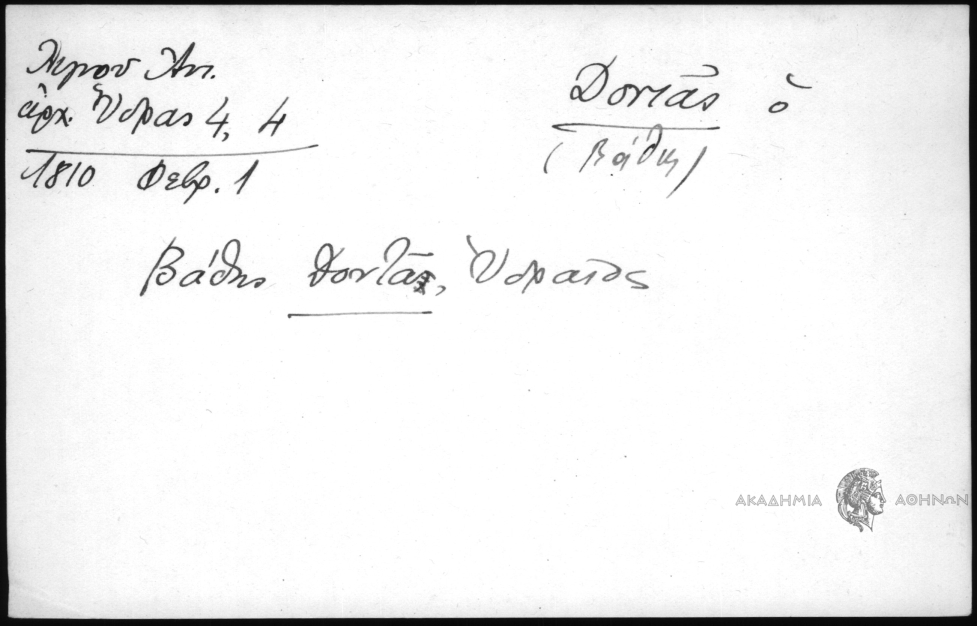 Λιγνού Ἀν.
ἀρχ. Ὕδρας 4, 4
1810 Φεβρ. 1
Δοντᾶς ὁ
(Βάθης)
Βάθης Δοντᾶς, Ὑδραῖος
ΑΚΑΔΗΜΙΑ ΑΘΗΝΩΝ